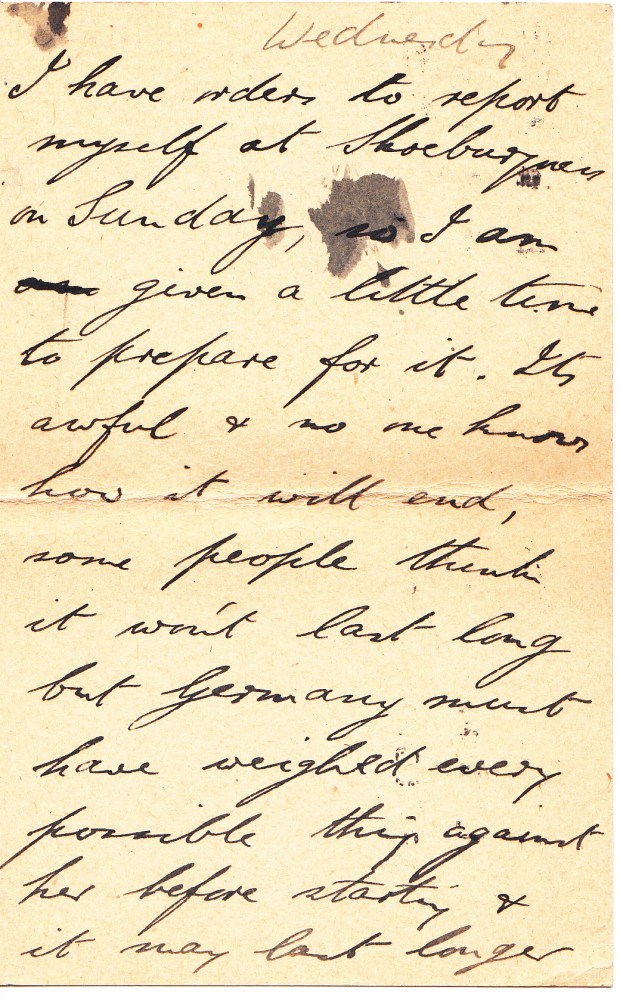 Wednesday
I have orders to report
myself at Shoeburyness
on Sunday, so I am
given a little time
to prepare for it. Its
awful & no one knows
how it will end,
some people think
it won't last long
but Germany must
have weighed every
possible thing against
her before starting &
it may last longer